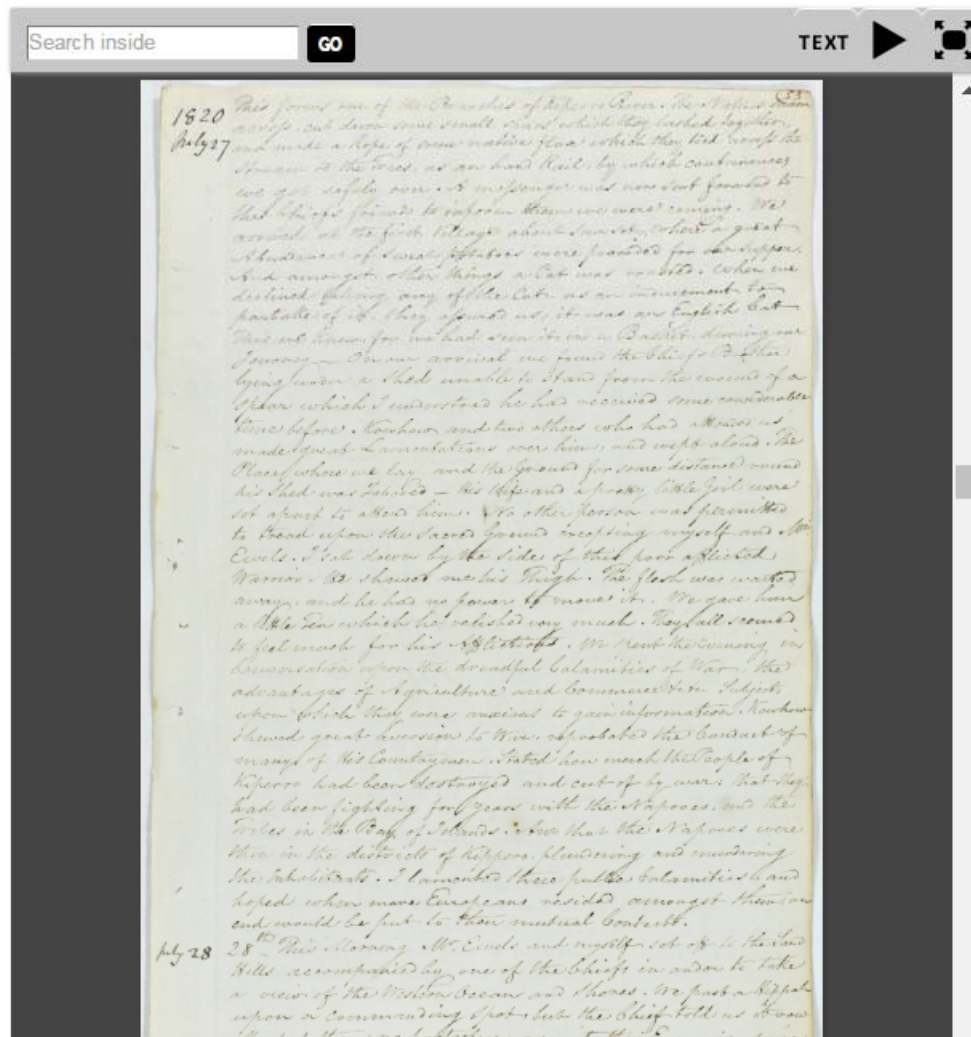 Search inside
GO
TEXT
53
1820
July 27
This forms one of the Branches of Kiperro River. The Natives swam
across, cut down some small which they lashed together,
and made a Rope of some native flax which they tied across the
Stream to the Trees, as an hand Rail, by which contrivances
we got safely over. A messenger was now sent forward to
the Chiefs friends to inform them we were coming. We
arrived at the first Village about Sun set, where a great
Abundance of sweet potatoes were provided for our supper.
And amongst other things a Cat was roasted. When we
declined eating any of the Cat, as an inducement to
partake of it, they assured us, it was an English Cat
This we knew, for we had seen it in a Basket during our
Journey — On our arrival we found the Chief's Brother
lying under a Shed unable to stand from the wound of a
spear which I understood he had received some considerable
time before. Kowhow and two others who had attended us
made great Lamentations over him, and wept aloud. The
Place where we lay and the Ground for some distance round
his Shed was Tabooed — His Wife and a pretty little Girl were
set apart to attend him. No other person was permitted
to tread upon the Sacred Ground excepting myself and Mr.
Ewels. I sat down by the side of this poor afflicted
Warrior. He shewed me his Thigh. The flesh was wasted
away, and he had no power to move it. We gave him
a little Tea which he relished very much. They all seemed
to feel much for his Afflictions. We spent the Evening in
Conversation upon the dreadful Calamities of War, the
advantages of Agriculture and Commerce &c. Subjects
upon which they were anxious to gain information. Kowhow
shewed great aversion to War, reprobated the Conduct of
many of His Countrymen. Stated how much the People of
Kiperro had been destroyed and cut of by war; that they
had been fighting for years with the Napooes and the
Tribes in the Bay of Islands. And that the Napooes were
then in the districts of Kippero plundering and murdering
the Inhabitants. I lamented these public Calamities and
hoped when more Europeans resided amongst them an
end would be put to their mutual Contests.
July 28
28th This Morning Mr. Ewels and myself set off to the Sand
Hills accompanied by one of the Chiefs in order to take
a view of the Western Ocean and Shores. We past a Hippah
upon a commanding spot, but the Chief told us it was